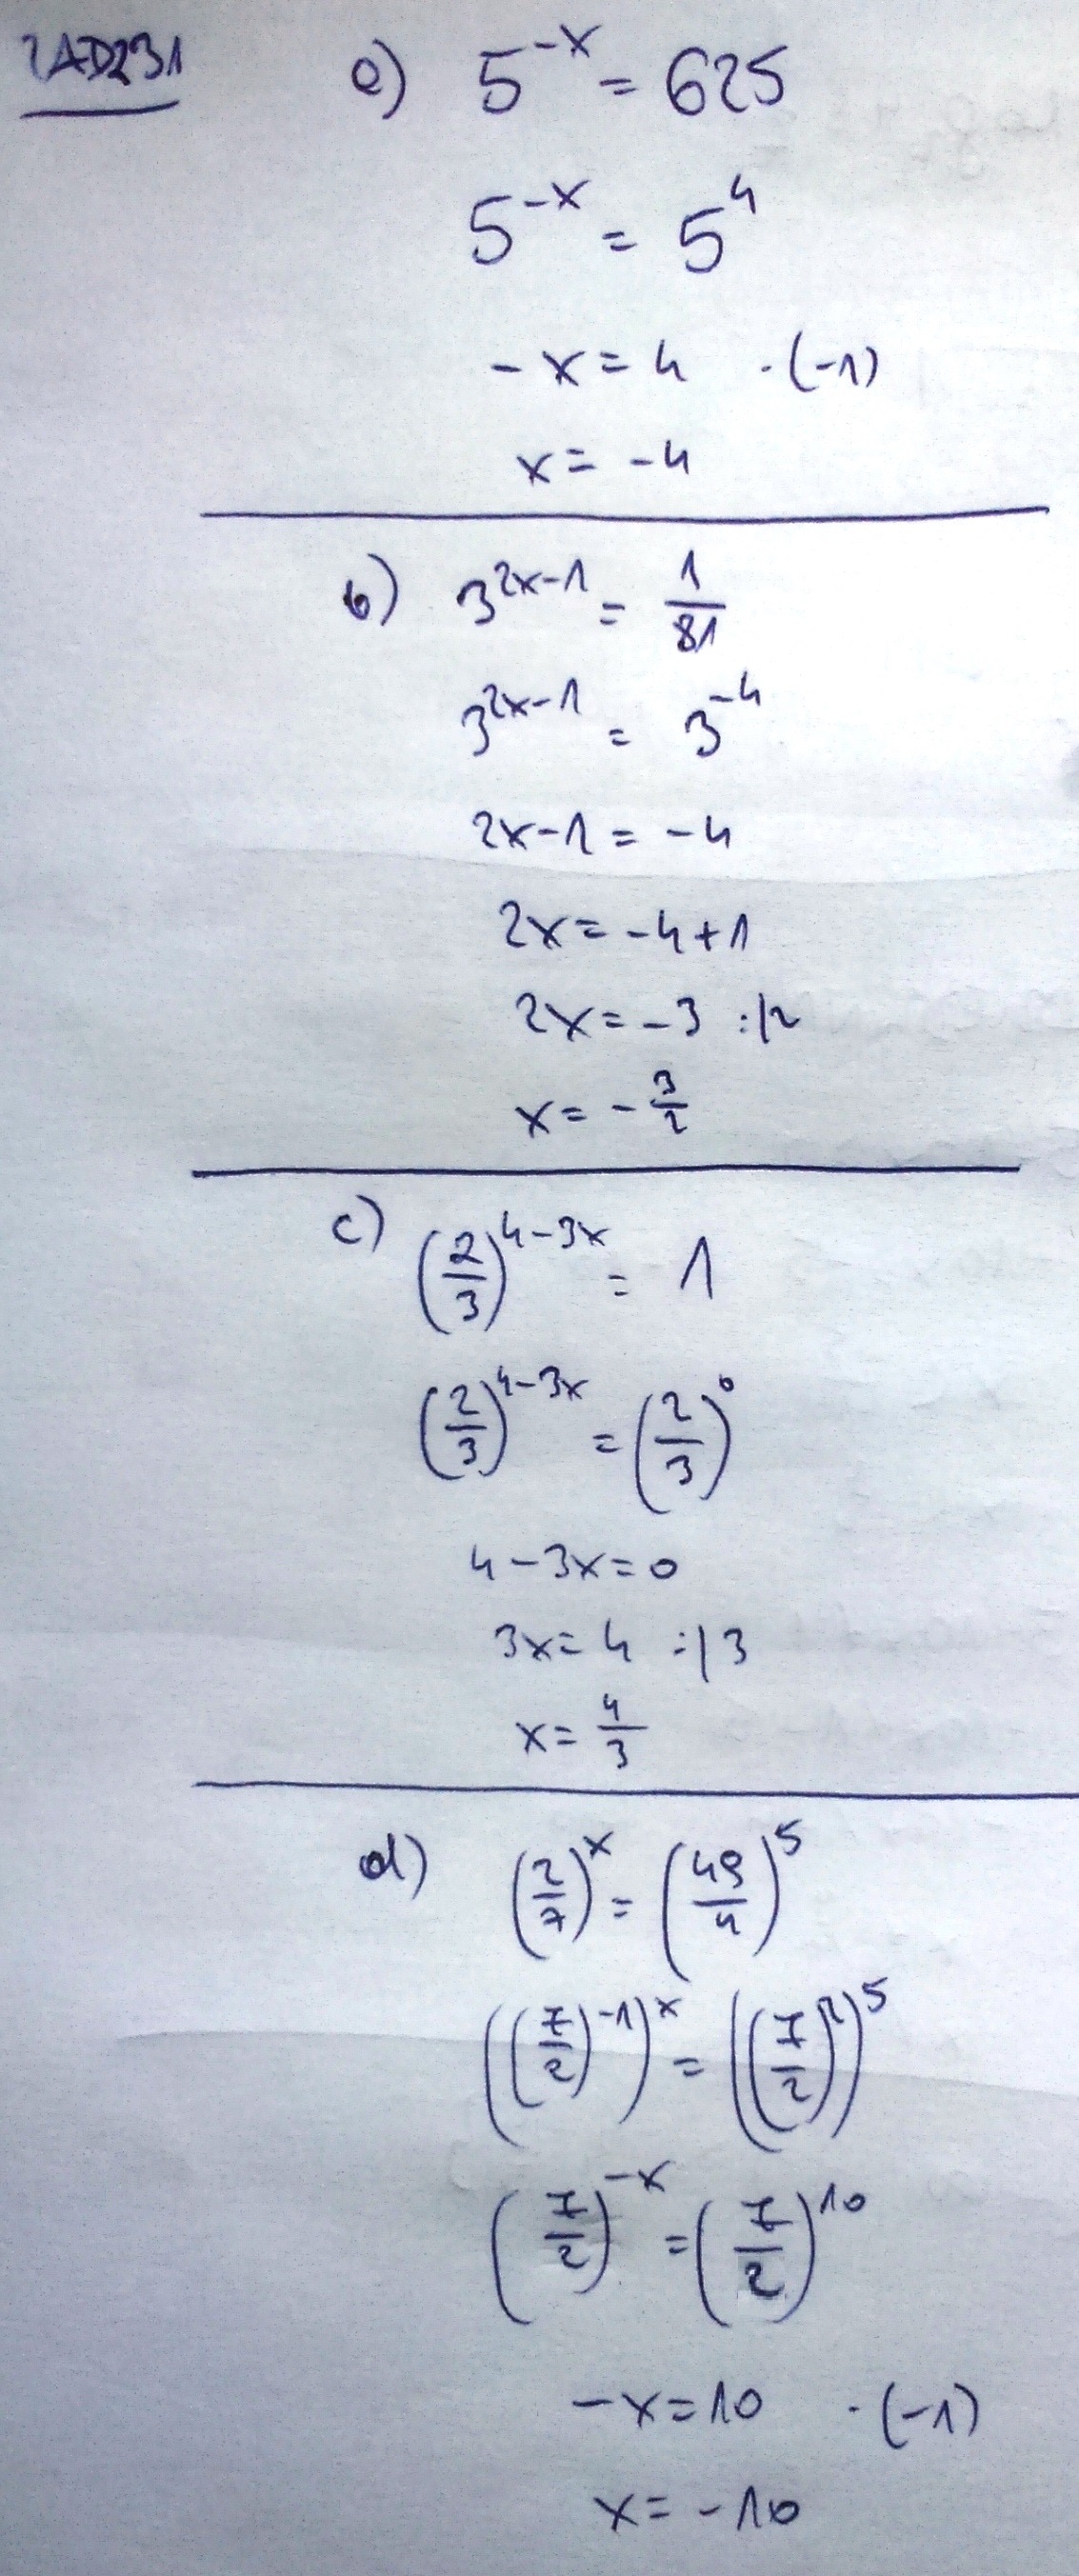 ZAD231
a) 5^{-x} = 625
5^{-x} = 5^4
-x = 4 ·(-1)
x = -4
b) 3^{2x-1} = \frac{1}{81}
3^{2x-1} = 3^{-4}
2x-1 = -4
2x = -4+1
2x = -3 :|2
x = -\frac{3}{2}
c) (\frac{2}{3})^{4-3x} = 1
(\frac{2}{3})^{4-3x} = (\frac{2}{3})^0
4-3x = 0
3x = 4 :|3
x = \frac{4}{3}
d) (\frac{2}{7})^x = (\frac{49}{4})^5
((\frac{7}{2})^{-1})^x = ((\frac{7}{2})^2)^5
(\frac{7}{2})^{-x} = (\frac{7}{2})^{10}
-x = 10 ·(-1)
x = -10